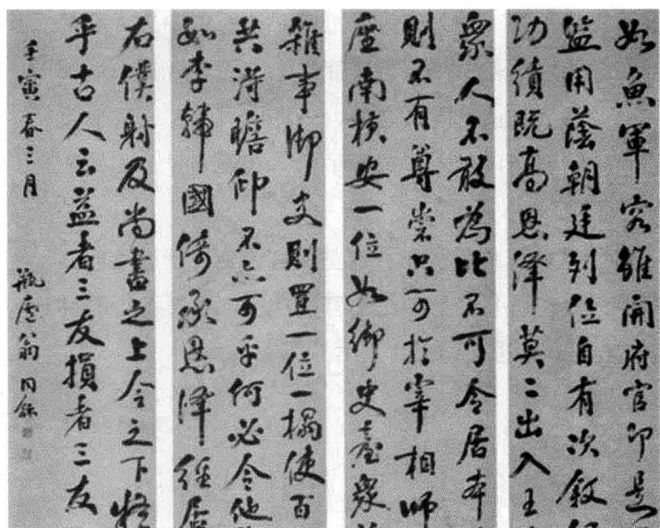 如魚軍容雖開府官即是
監用蔭朝廷列位自有次敘
功績既高恩澤莫二出入王
衆人不敢為比不可令居本
則不有尊崇只可於宰相師
座南橫安一位如御史臺衆
雜事御史則置一位一榻使百
共得瞻仰不亦可乎何必令他
如李輔國倚承恩澤徑居
右僕射及尚書之上令天下
乎古人云益者三友損者三友
壬寅春三月 瓶廬翁同龢